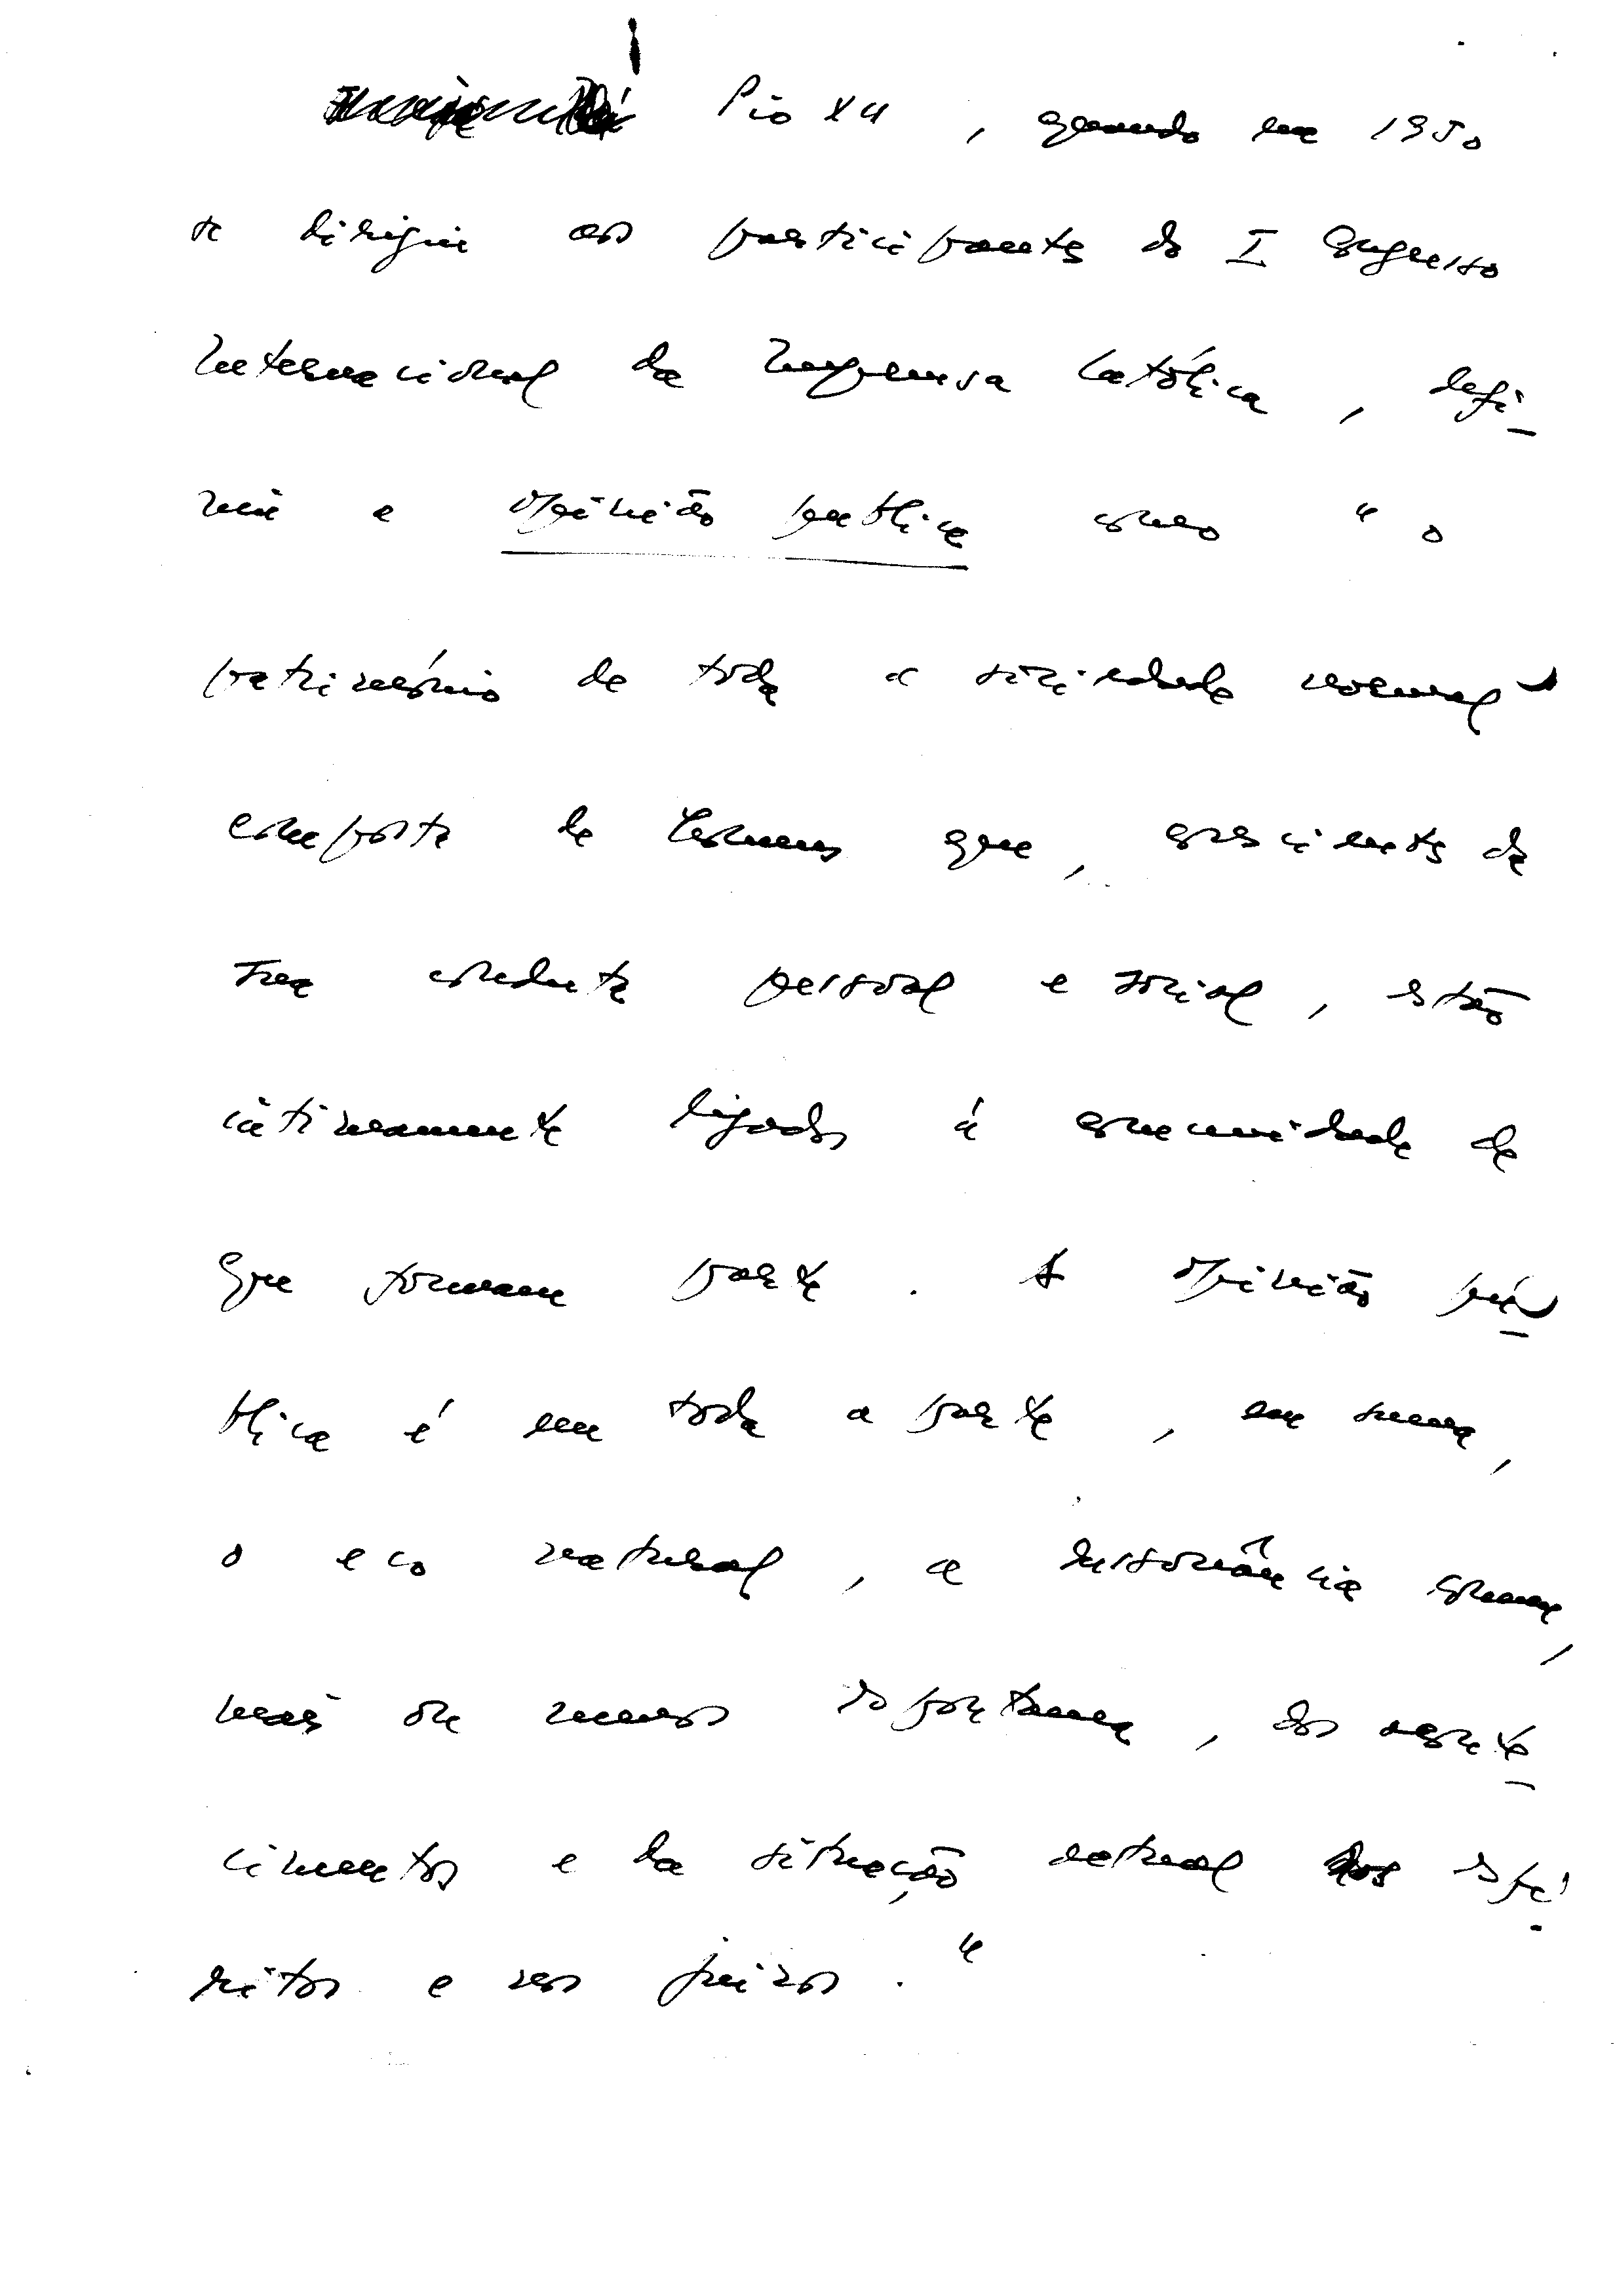 Pio XII, quando em 1950
se dirigiu aos participantes do I Congresso
Internacional da Imprensa Católica, defi-
niu a opinião publica como "o
património de toda a sociedade normal
composta de homens que, conscientes da
sua conduta pessoal e social, estão
intimamente ligados á comunidade de
que formam parte. A opinião pú-
blica é em toda a parte, em suma,
o eco natural, a ressonância comum,
mais ou menos espontanea, dos aconte-
cimentos e da situação actual dos espí-
ritos e nos juizos."